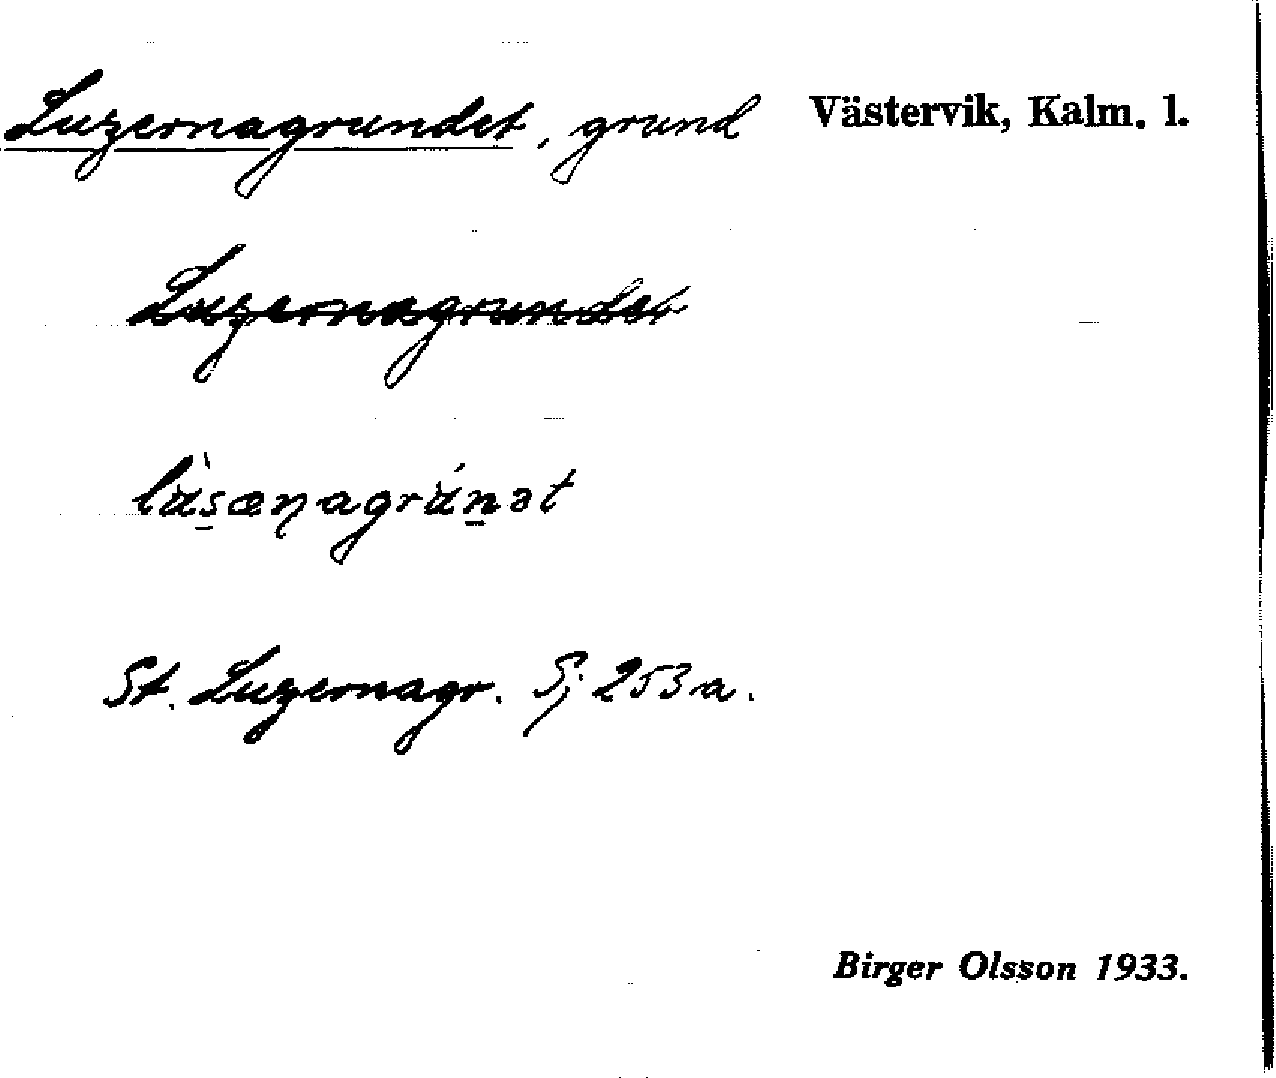 Luzernagrundet, grund Västervik, Kalm. l.
Luzernagrundet
lùs̲æɳagrún̲ət
St. Luzernagr. Sj 253 a.
Birger Olsson 1933.